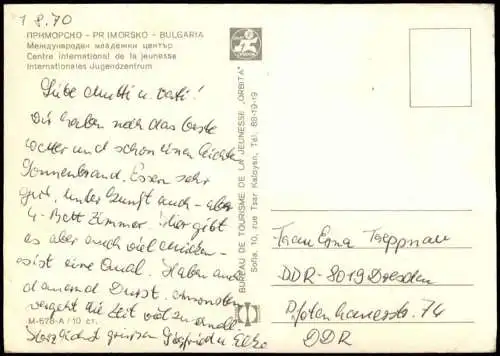 1 8.70
ПРИМОРСКО - PRIMORSKO - BULGARIA
Международен младежки център
Centre international de la jeunesse
Internationales Jugendzentrum
Liebe Mutti u. Vati!
Wir haben noch das beste
Wetter und schon einen leichten
Sonnenbrand. Essen sehr
gut, Unterkunft auch - aber
4-Bett Zimmer. Hier gibt
es aber auch viel Mücken -
es ist eine Qual. Haben auch
dauernd Durst. Ansonsten
vergeht die Zeit viel zu schnell
Herzlichst grüssen Siegfried u. Elke
М-678-А / 10 ст.
BUREAU DE TOURISME DE LA JEUNESSE „ORBITA"
Sofia, 10, rue Tzar Kaloyan, Tél. 88-19-19
Frau Erna Treppnau
DDR-8019 Dresden
Pfotenhauerstr. 74
DDR